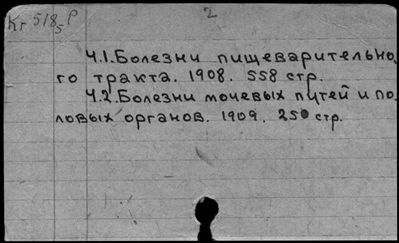 Kr 518-P
5
2
Ч.1. Болезни пищеварительно-
го тракта. 1908. 558 стр.
Ч.2. Болезни мочевых путей и по-
ловых органов. 1909. 250 стр.